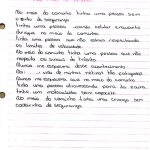 No meio do caminho tinha uma pessoa sem
o cinto de segurança
tinha uma pessoa usando celular enquanto
dirigia no meio do caminho
tinha uma pessoa que não estava respeitando
os limites de velocidade.
No meio do caminho tinha uma pessoa que não
respeita os sinais de trânsito
Nunca me esquecerei desse acontecimento
na vida de minhas retinas tão fatigadas
Nunca me esquecerei que no meio do caminho
tinha uma pessoa atravessando fora da faixa
tinha um motociclista sem capacete
No meio do caminho tinha uma criança sem
cadeirinha de segurança